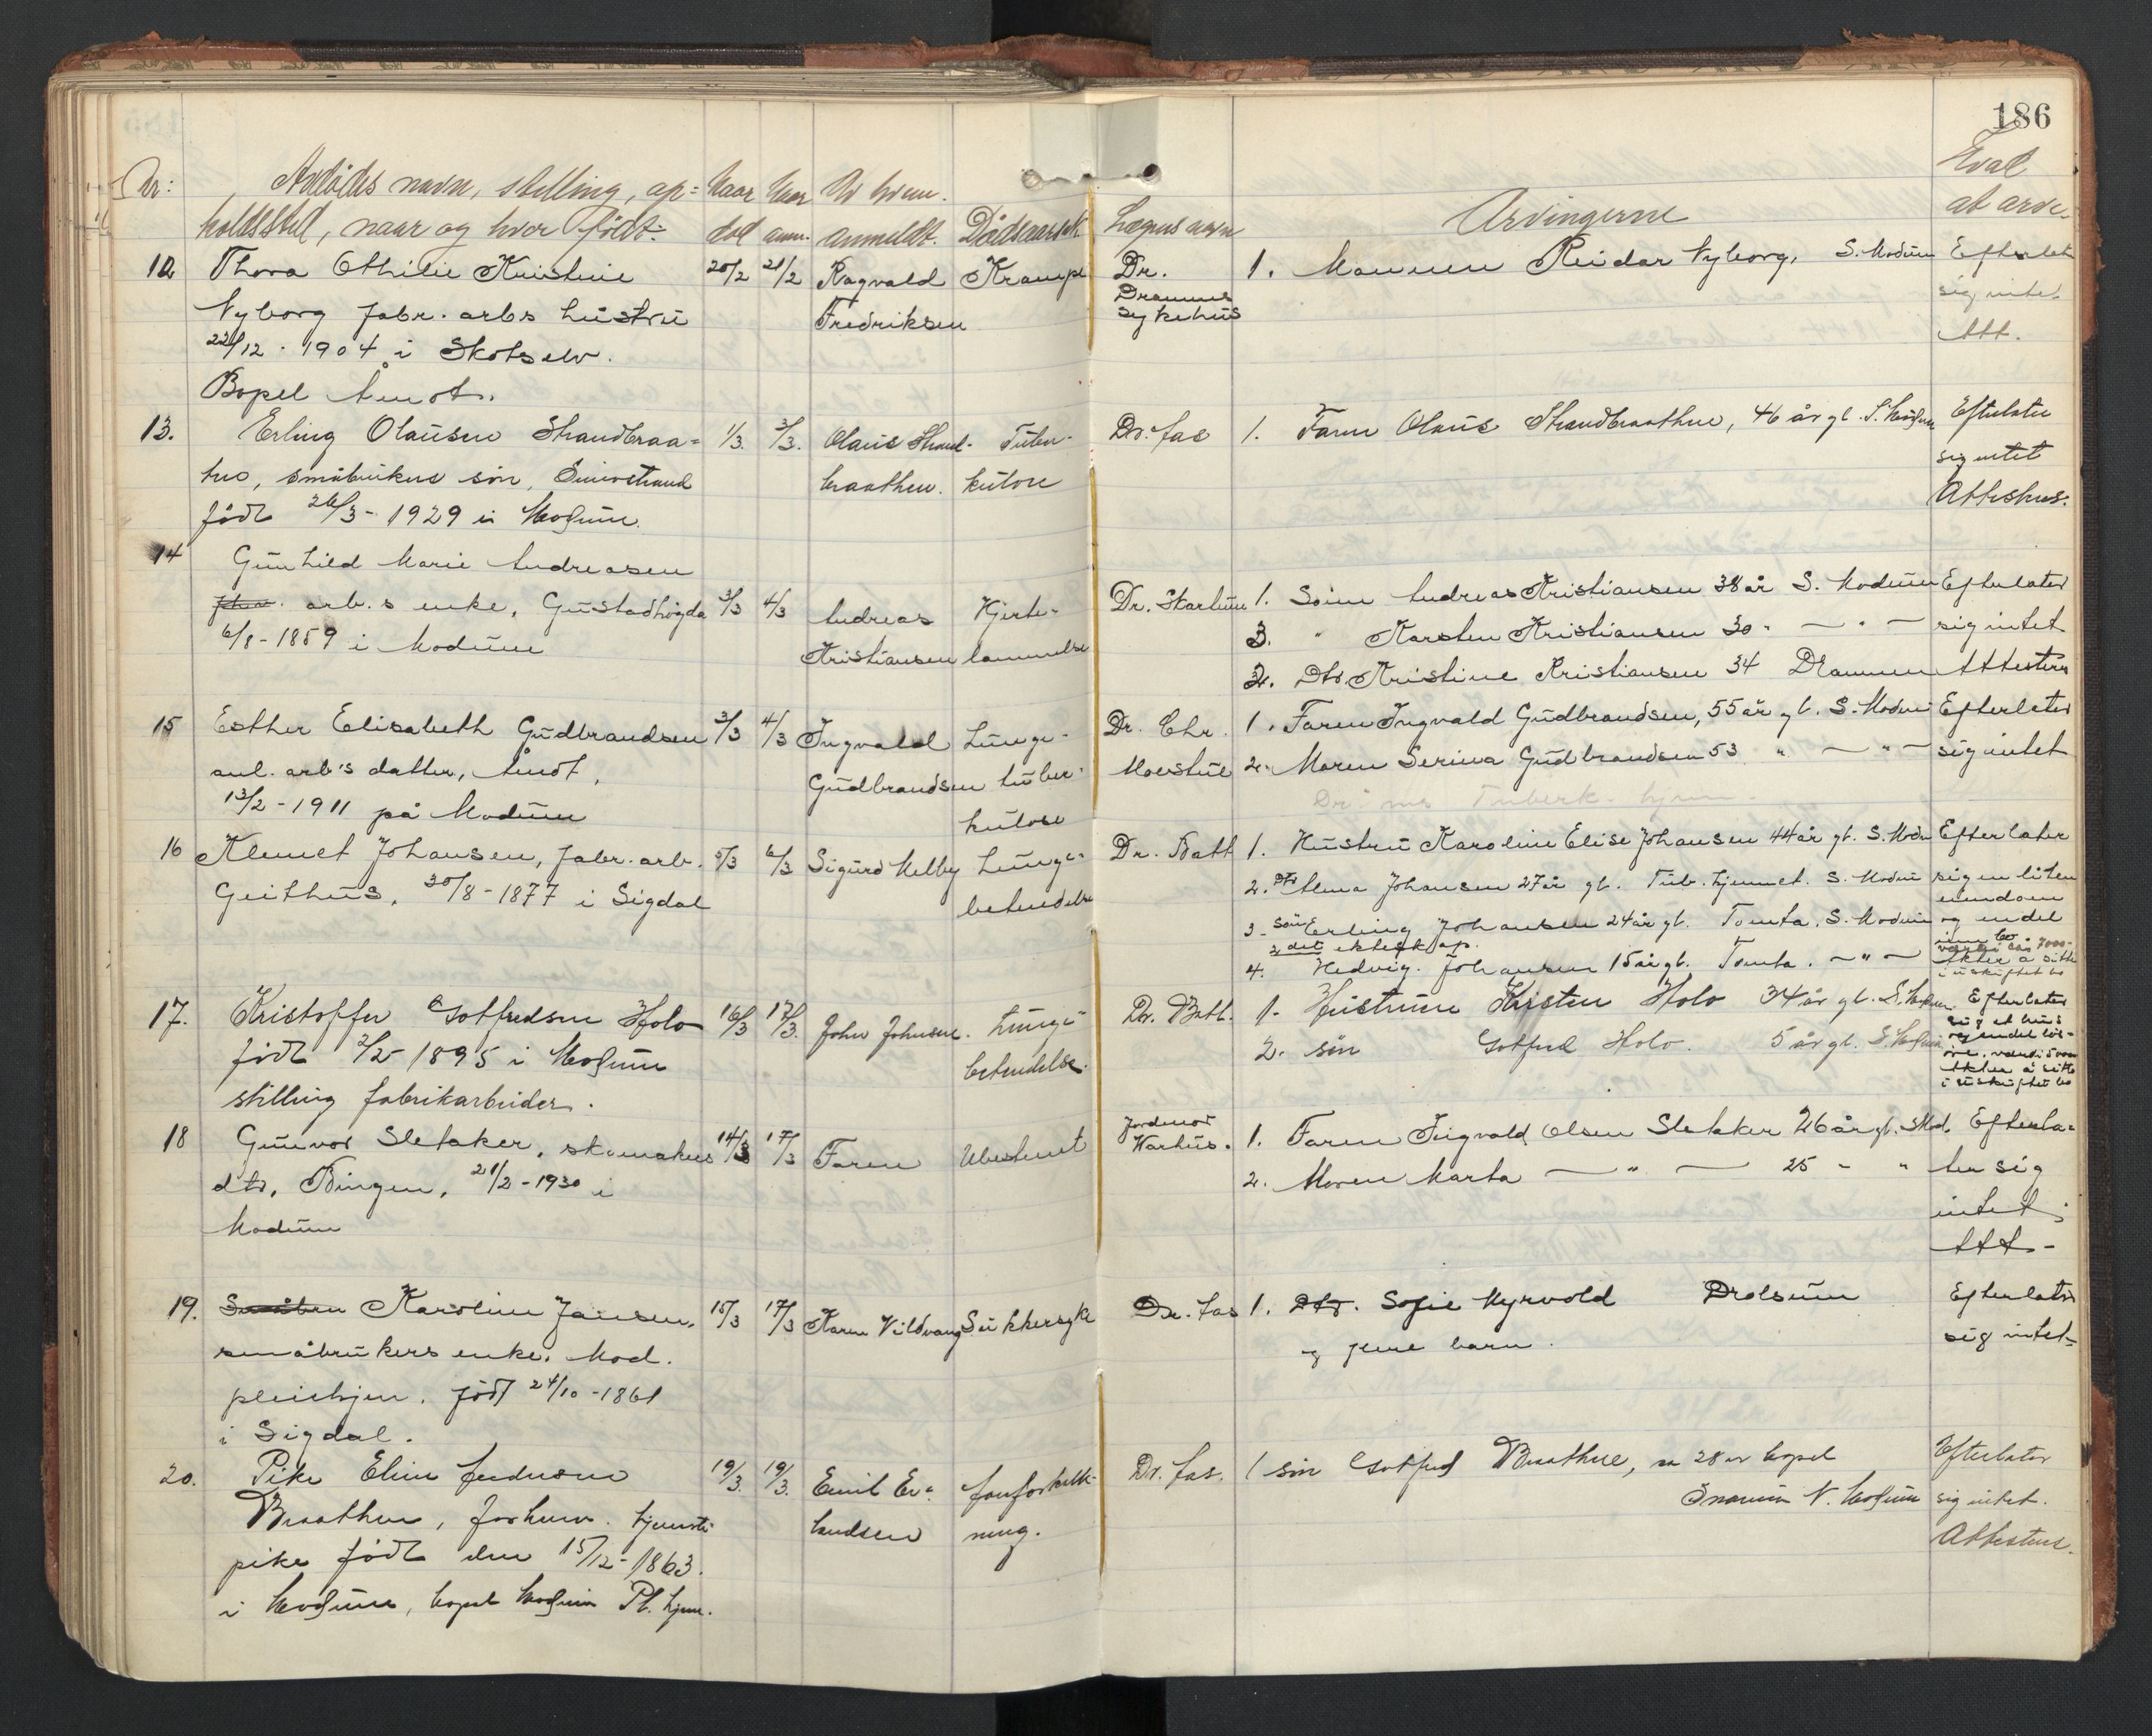 186
Nr: Avdødes navn, stilling, op= Naar Naar Av hvem Lægens navn Arvingerne Eval
holdssted, naar og hvor født: død anm. anmeldt. Dødsaarsak at arve.
12 Thora Othilie Kristine 20/2 21/2 Ragvald Krampe Dr. 1. Mannen Reidar Nyborg, S. Modum Efterlater
Nyborg fabr. arbs hustru Fredriksen Drammens sykehus sig intet
22/12 - 1904 i Skotselv. Att.
Bopel Åmot.
13. Erling Olausen Strandbraa= 1/3. 3/3. Olaus Strand- Tuber- Dr. Fas 1. Faren Olaus Strandbraathen, 46 år gl. S. Modum Efterlater
ten, småbrukers søn, braathen. kulose sig intet
født 26/3 - 1929 i Modum. Attesteres.
14 Gunhild Marie Andreasen
arb.s enke, Gustadhøgda 3/3 4/3 Andreas Hjerte- Dr. Skarhum 1. Sønn Andreas Kristiansen 38 år S. Modum Efterlater
6/8 - 1859 i Modum Kristiansen lammelse 3. " Karsten Kristiansen 30 - — " — sig intet
2. Dtr. Kristine Kristiansen 34 Drammen Attesteres
15 Esther Elisabeth Gudbrandsen 3/3 4/3 Ingvald Lunge- Dr. Chr. 1. Faren Ingvald Gudbrandsen, 55 år gl. S. Modum Efterlater
anl. arb's datter, Åmot, Gudbrandsen tuber- Moestue 2. Moren Serina Gudbrandsen 53 " — " — sig intet
13/2 - 1911 på Modum kulose
16 Klemet Johansen, fabr. arb. 5/3 6/3 Sigurd Melby Lunge- Dr. Batt 1. Hustru Karoline Elise Johansen 44 år gl. S. Modum Efterlater
Geithus, 30/8 - 1877 i Sigdal betendelse 2. Dtr Alma Johansen 27 år gl. Tub. hjemmet. S. Modum sig en liten
eiendom
3. Søn Erling Johansen 24 år gl. Tomta, S. Modum og endel
2 det ekteskap. innbo.
4. Hedvig. Johansen 15 år gl. Tomta. — " — verdi ca. 7000-
Akter å sitte
i uskiftet bo
17. Kristoffer Gotfredsen Holo 16/3 17/3. John Johnsen. Lunge- Dr. Batt. 1. Hustruen Kirsten Holo 34 år gl. S. Modum. Efterlater
født 2/2 1895 i Modum betendelse. 2. søn Gotfred Holo. 5 år gl. S. Modum sig et hus
stilling fabrikarbeider. og endel løs-
øre. verdi 5000
Akter å sitte
i uskiftet bo
18 Gunvor Sletaker, skomakers 14/3 17/3 Faren Ubestemt Jordmor Warhus. 1. Faren Ingvald Olsen Sletaker 26 år gl. S Mod. Efterla=
dtr, Bingen, 21/2 - 1930 i 2. Moren Marta — " — 25 - " ter sig
Modum intet
Att -
19. Karoline Jansen, 15/3 17/3 Karen Vildvang Sukkersyke Dr. Fas 1. Dtr. Sofie Myrvold Drolsum Efterlater
småbrukers enke. Mod. og flere barn. sig intet-
pleiehjem. født 24/10 - 1861
i Sigdal.
20. Pike Elin 19/3. 19/3. Emil Er= Aareforkalk- Dr. Fas. 1 søn Gotfred Braathen, ca 28 år bopel Efterlater
Braathen, forhenv. tjeneste landsen ning. Snarum N. Modum sig intet.
pike født den 15/12 - 1863. Attesteres.
i Modum, bopel Modum Pl. hjem.